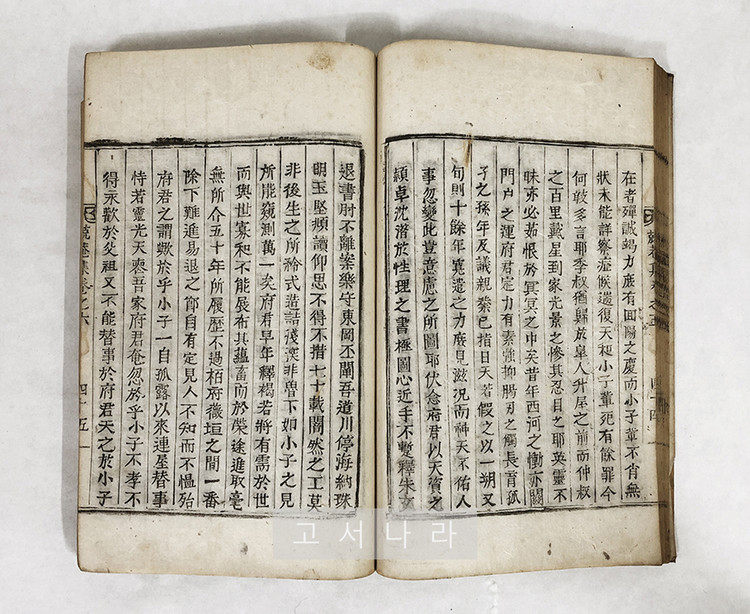 在者殫誠竭力庶有回陽之慶而小子輩不肖無
狀未能詳察症候遽復天和小子輩死有餘罪今
何敢多言耶季叔猶歸於皐人升屋之前而仲叔
之百里戴星到家光景之慘其忍目之耶英靈不
昧亦必茹恨於冥冥之中矣昔年西河之慟亦關
門戶之運府君定力有素強抑腸刃之觸長音孤
子之孫年及議親棐已指日天若假之以一朔又
旬則十餘年寬遣之力庶見滋況而神天不佑人
事忽變此豈意慮之所圖耶伏念府君以天資之
穎卓沈潛於性理之書極圖心近手不暫釋朱文
退書肘不離案樂守東岡不闡吾道川停海納珠
明玉堅頫讀仰思不得不措七十載闇然之工莫
非後生之所矜式造詣淺深非曾下如小子之見
所能窺測萬一矣府君早年釋褐若將有需於世
而與世寡和不能展布其蘊畜而於榮途進取毫
無所介五十年所履歷不過栢府薇垣之間一番
除下難進易退之節自有定見人不知而不慍殆
府君之謂歟於乎小子一自孤露以來連至替事
恃若靈光天喪吾家府君奄忽於乎小子不孝不
得永歡於父祖又不能替事於府君天之於小子
卷之六
四十五
고서나라